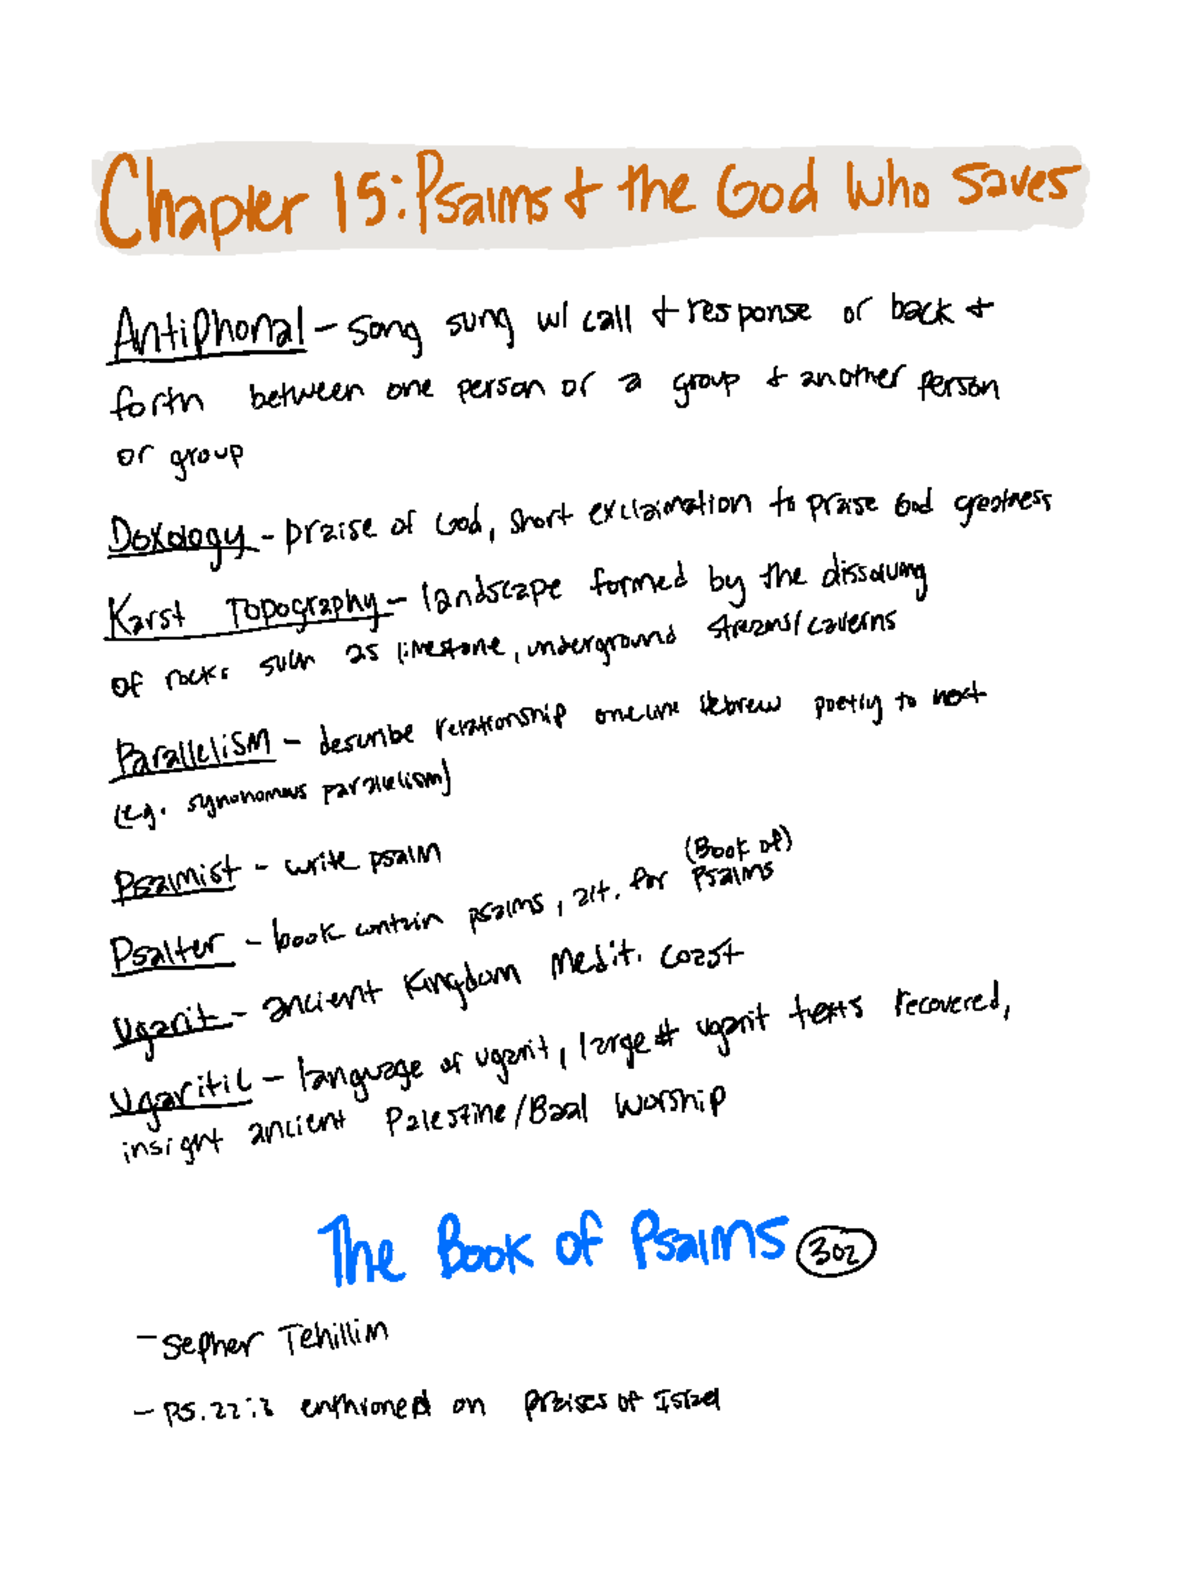 Chapter 15: Psalms & the God Who Saves
Antiphonal - song sung w/ call & response or back &
forth between one person or a group & another person
or group
Doxology - praise of God, short exclaimation to praise God greatness
Karst Topography - landscape formed by the dissolving
of rocks such as limestone, underground streams/caverns
Parallelism - describe relationship one line Hebrew poetry to next
(e.g. synonomous parallelism)
Psalmist - write psalm
(Book of)
Psalter - book contain psalms, alt. for Psalms
Ugarit - ancient Kingdom Medit. coast
Ugaritic - language of ugarit, large # ugarit texts recovered,
insight ancient Palestine/Baal Worship
The Book of Psalms 302
- Sepher Tehillim
- PS. 22:3 enthroned on praises of Israel